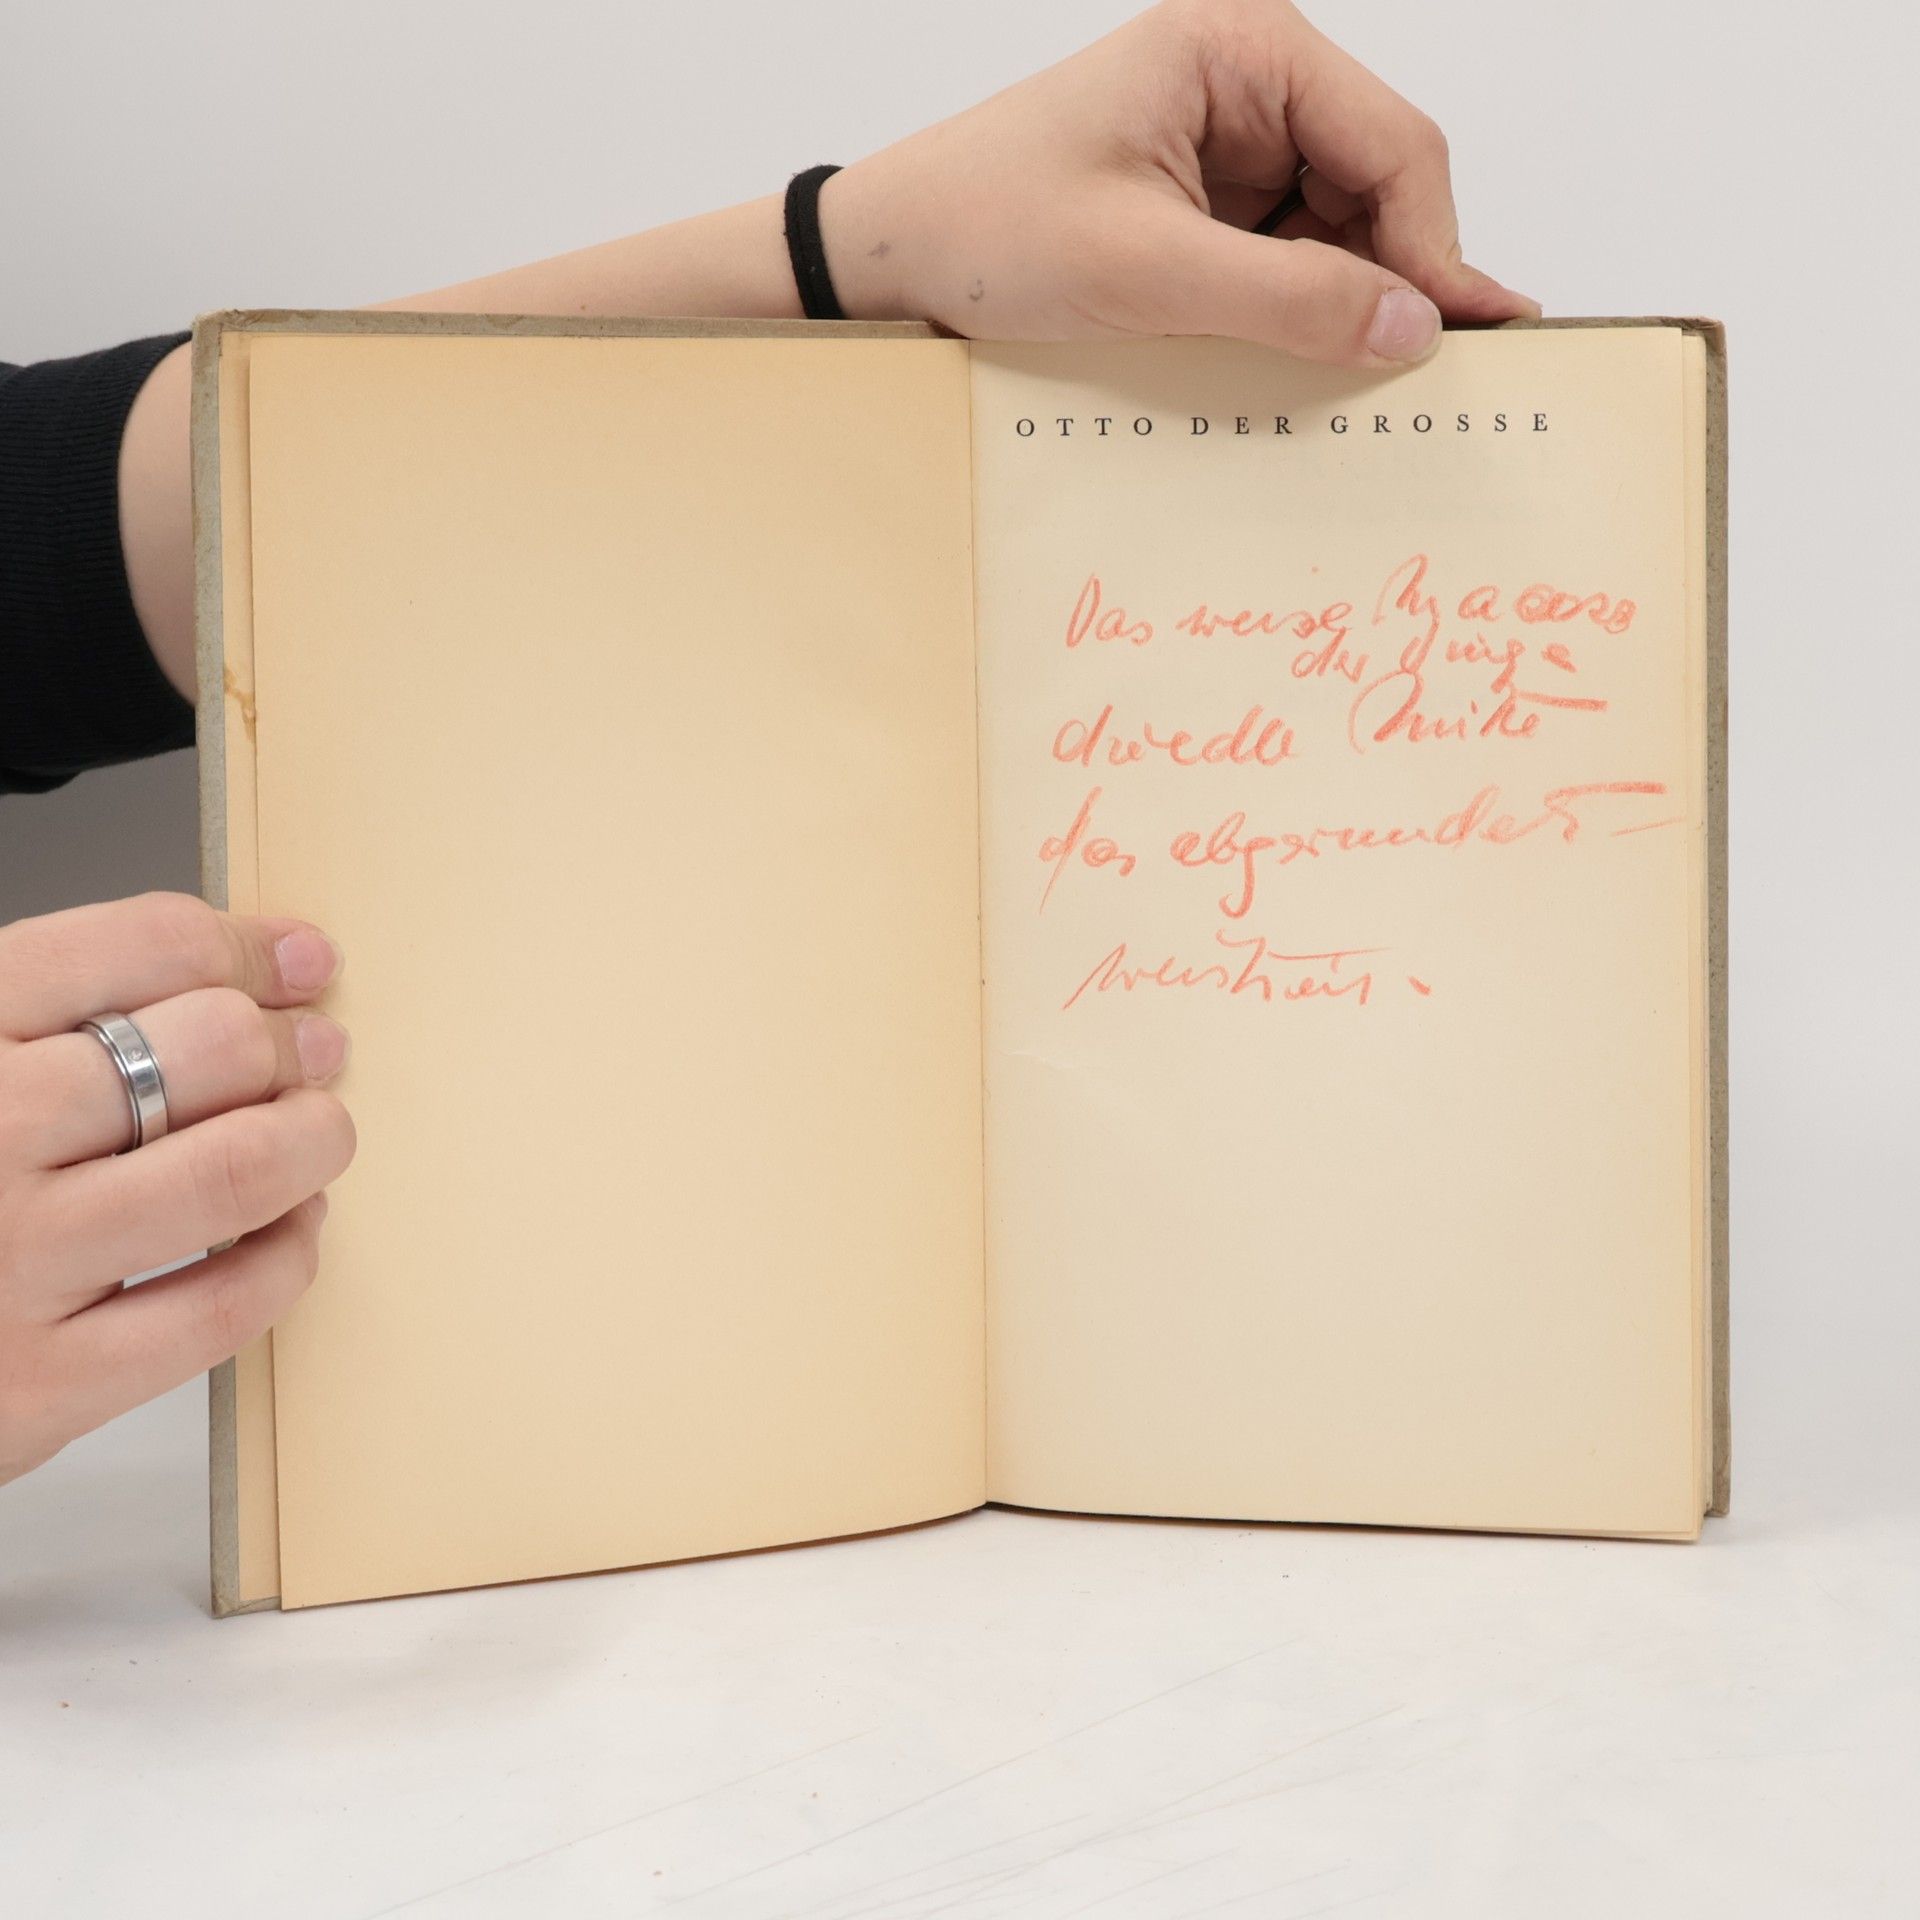 OTTO DER GROSSE
Das weise Maass
der Dinge
die edle Mitte
das abgerundet
weisheit.